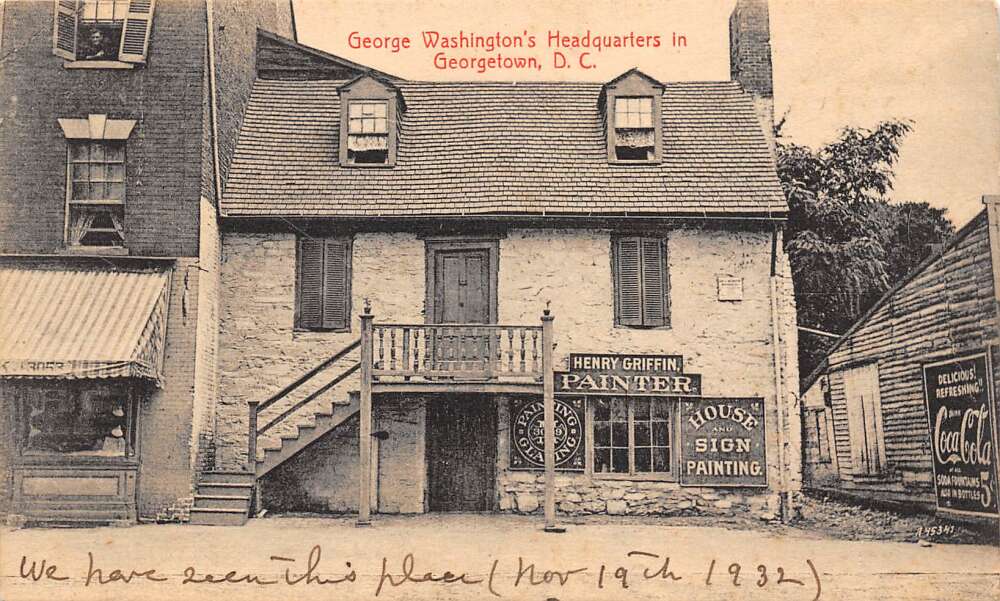 George Washington's Headquarters in
Georgetown, D. C.
3053
HENRY GRIFFIN,
PAINTER
PAINTING
GLAZING
HOUSE
AND
SIGN
PAINTING.
DELICIOUS!
REFRESHING!
DRINK
Coca-Cola
AT ALL
SODA FOUNTAINS
ALSO IN BOTTLES
5¢
We have seen this place (Nov 19th 1932)